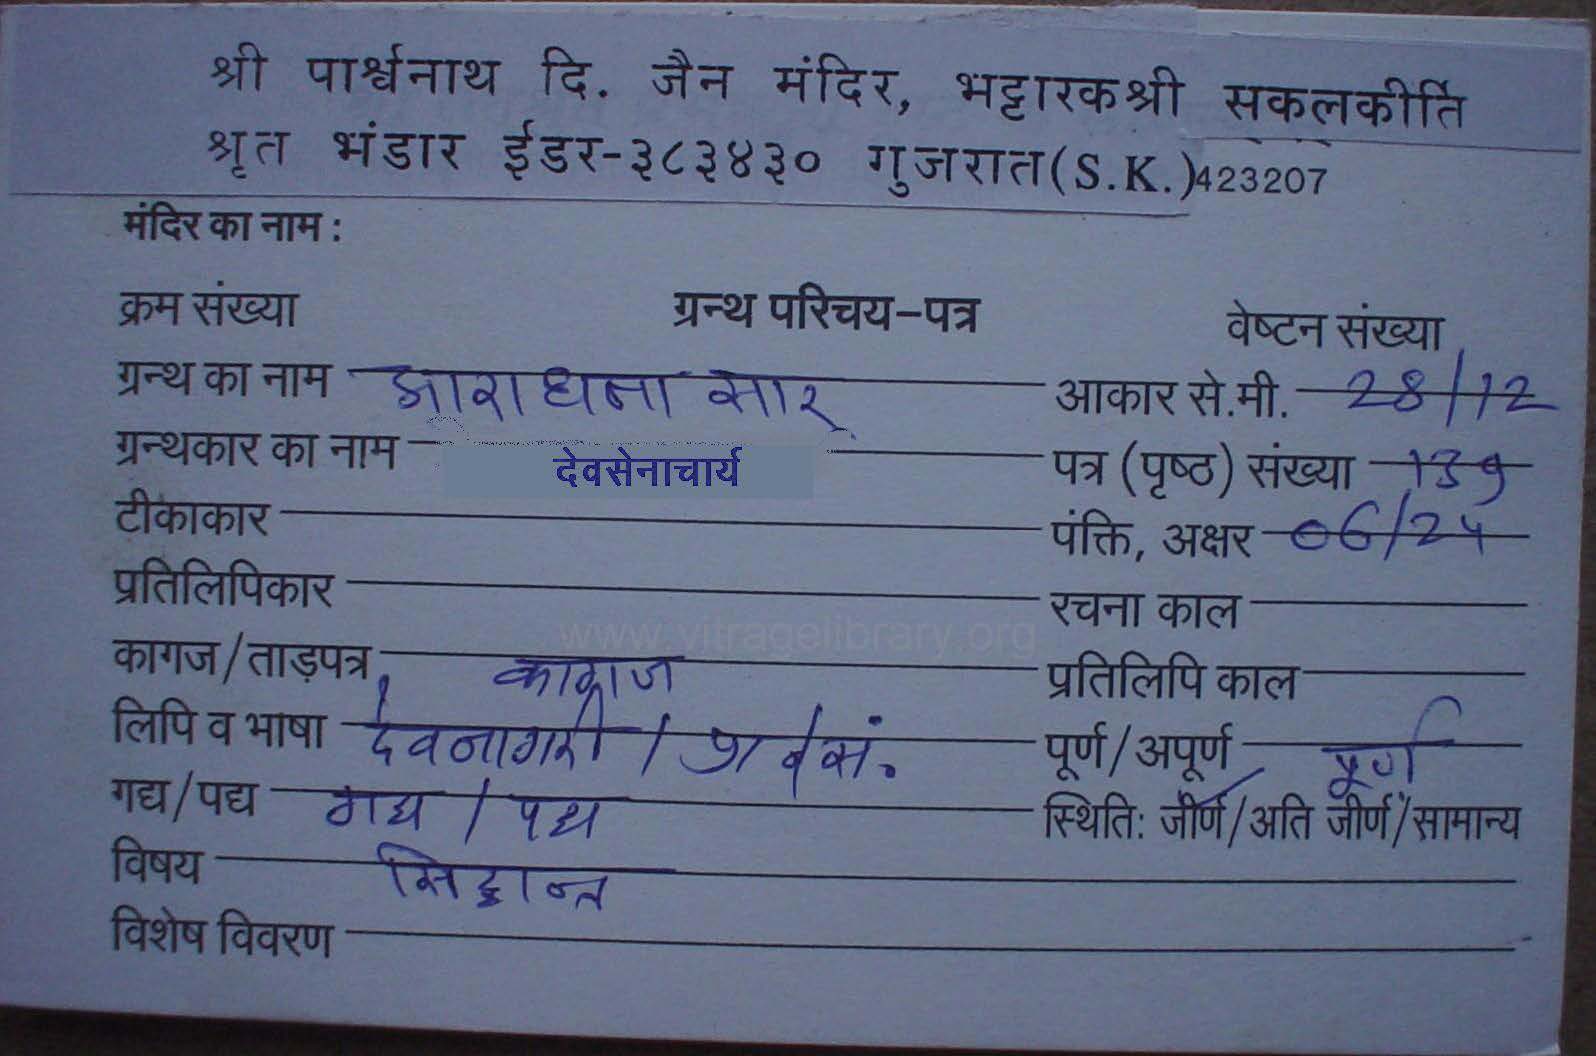 श्री पार्श्वनाथ दि. जैन मंदिर, भट्टारकश्री सकलकीर्ति
श्रृत भंडार ईडर-३८३४३० गुजरात(S.K.)423207
मंदिर का नाम :
क्रम संख्या ग्रन्थ परिचय-पत्र वेष्टन संख्या
ग्रन्थ का नाम आराधना सार आकार से.मी. 28/12
ग्रन्थकार का नाम देवसेनाचार्य पत्र (पृष्ठ) संख्या 139
टीकाकार पंक्ति, अक्षर 06/24
प्रतिलिपिकार रचना काल
www.vitragelibrary.org
कागज/ताड़पत्र कागज प्रतिलिपि काल
लिपि व भाषा देवनागरी / सं. पूर्ण/अपूर्ण पूर्ण
गद्य/पद्य गद्य / पद्य स्थिति: जीर्ण/अति जीर्ण/सामान्य
विषय सिद्धान्त
विशेष विवरण